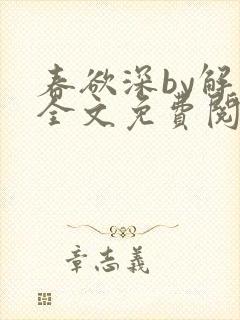 春欲深by解
全文免費閱
章志義